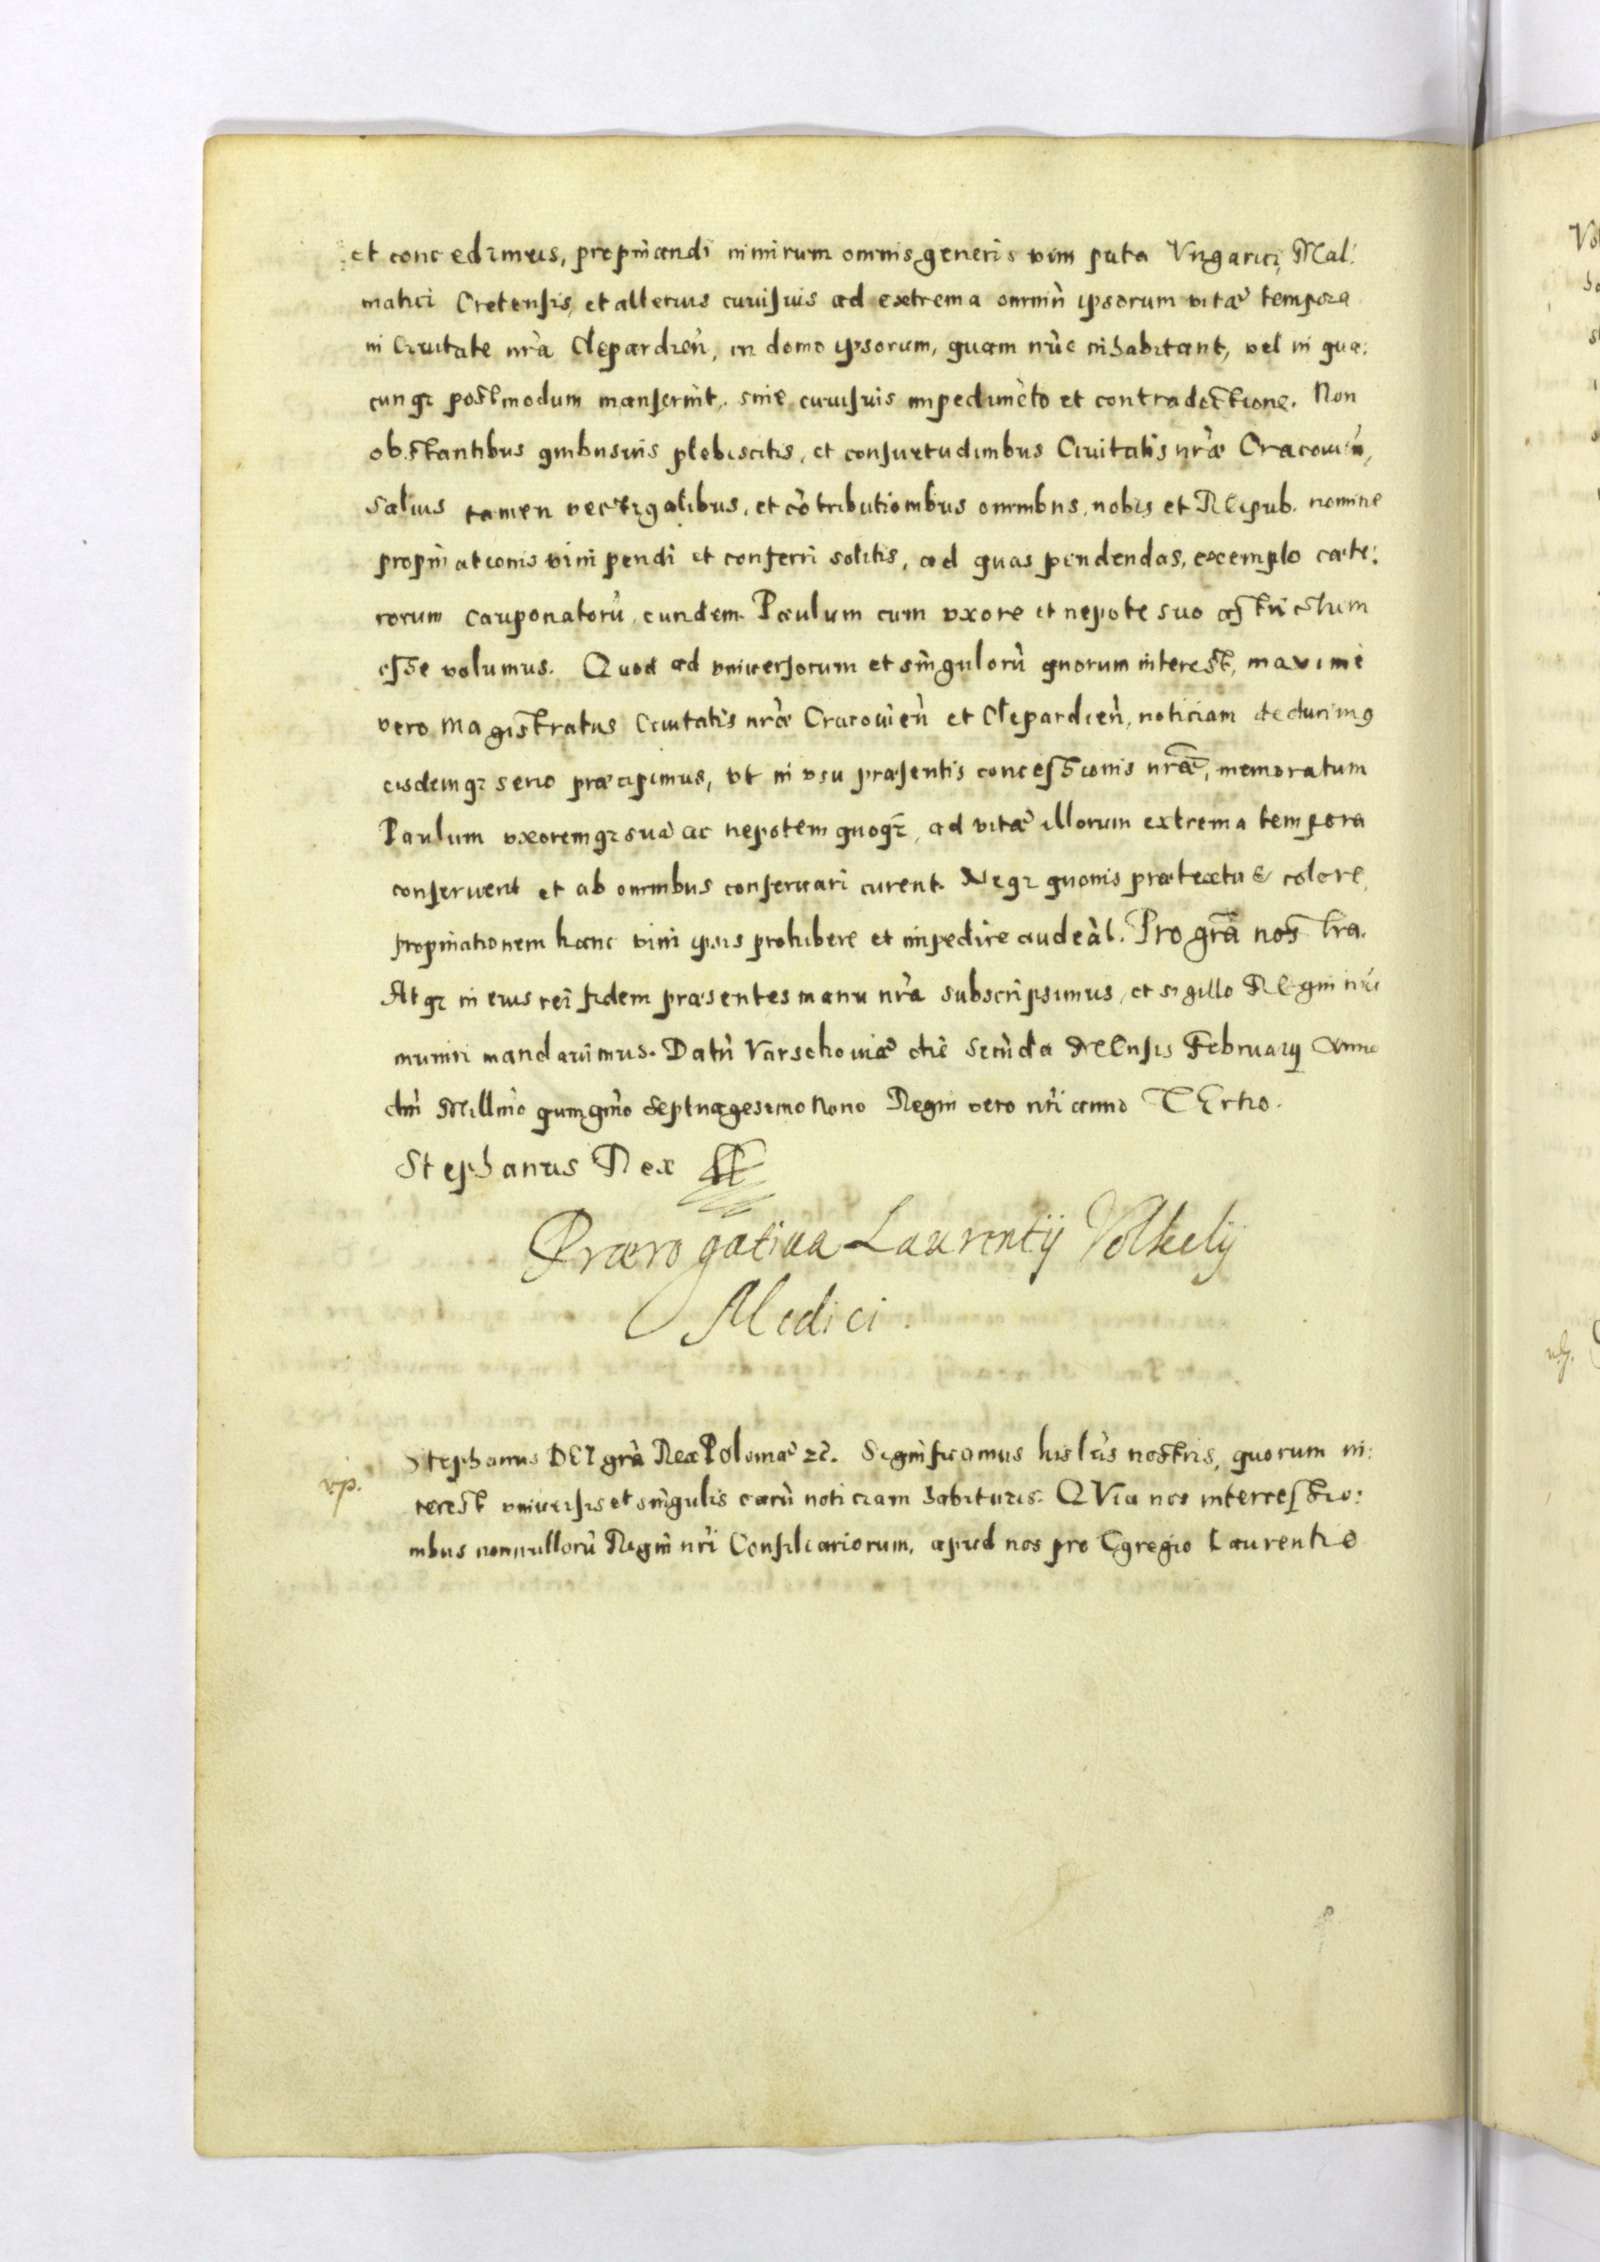 et concedimus, propinandi nimirum omnis generis vini puta Vngarici, Mal:
matici Cretensis, et alterius cuiusuis ad extrema omnin ipsorum vitæ tempora
in Ciuitate nr̃a Clepardien̄, in domo ipsorum, quam nũc inhabitant, vel in qua:
cunqȝ postmodum manserint, sine cuiusuis impedimẽto et contradictione. Non
obstantibus quibusuis plebiscitis, et consuetudinibus Ciuitatis nr̃æ Cracouien̄,
Saluis tamen vectigalibus, et cõtributionibus omnibus, nobis et Reipub. nomine
propinationis vini pendi et conferri solitis, ad quas pendendas, exemplo cæte:
rorum cauponatorũ, eundem Paulum cum vxore et nepote suo astrictum
esse volumus. Quod ad vniuersorum et singulorũ quorum interest, maxime
vero Magistratus Ciuitatis nr̃æ Cracouien̄ et Clepardien̄, noticiam deducimꝰ
eisdemqȝ serio præcipimus, vt in vsu præsentis concessionis nr̃æ, memoratum
Paulum vxoremqȝ suã ac nepotem quoqȝ, ad vitæ illorum extrema tempora
conseruent et ab omnibus conseruari curent. Neqȝ quouis prætextu & colore,
propinationem hanc vini ipsis prohibere et impedire audeãt. Pro grã nostra.
Atqȝ in eius rei fidem præsentes manu nr̃a subscripsimus, et sigillo Regni nr̃i
muniri mandauimus. Datũ Varschouiæ die Secũda Mensis Februarij Anno
dnĩ Millmõ quingmõ Septuagesimo Nono Regni vero nr̃i anno Tertio.
Stephanus Rex
Prærogatiua Laurentij Volkelij
Medici.
Stephanus DEI grã Rex Poloniæ ꝛc̃. Significamus his lr̃is nostris, quorum in:
vp.
terest vniuersis et singulis earũ noticiam habituris. QVia nos intercessio:
nibus nonnullorũ Regni nr̃i Consiliariorum, apud nos pro Egregio Laurentio